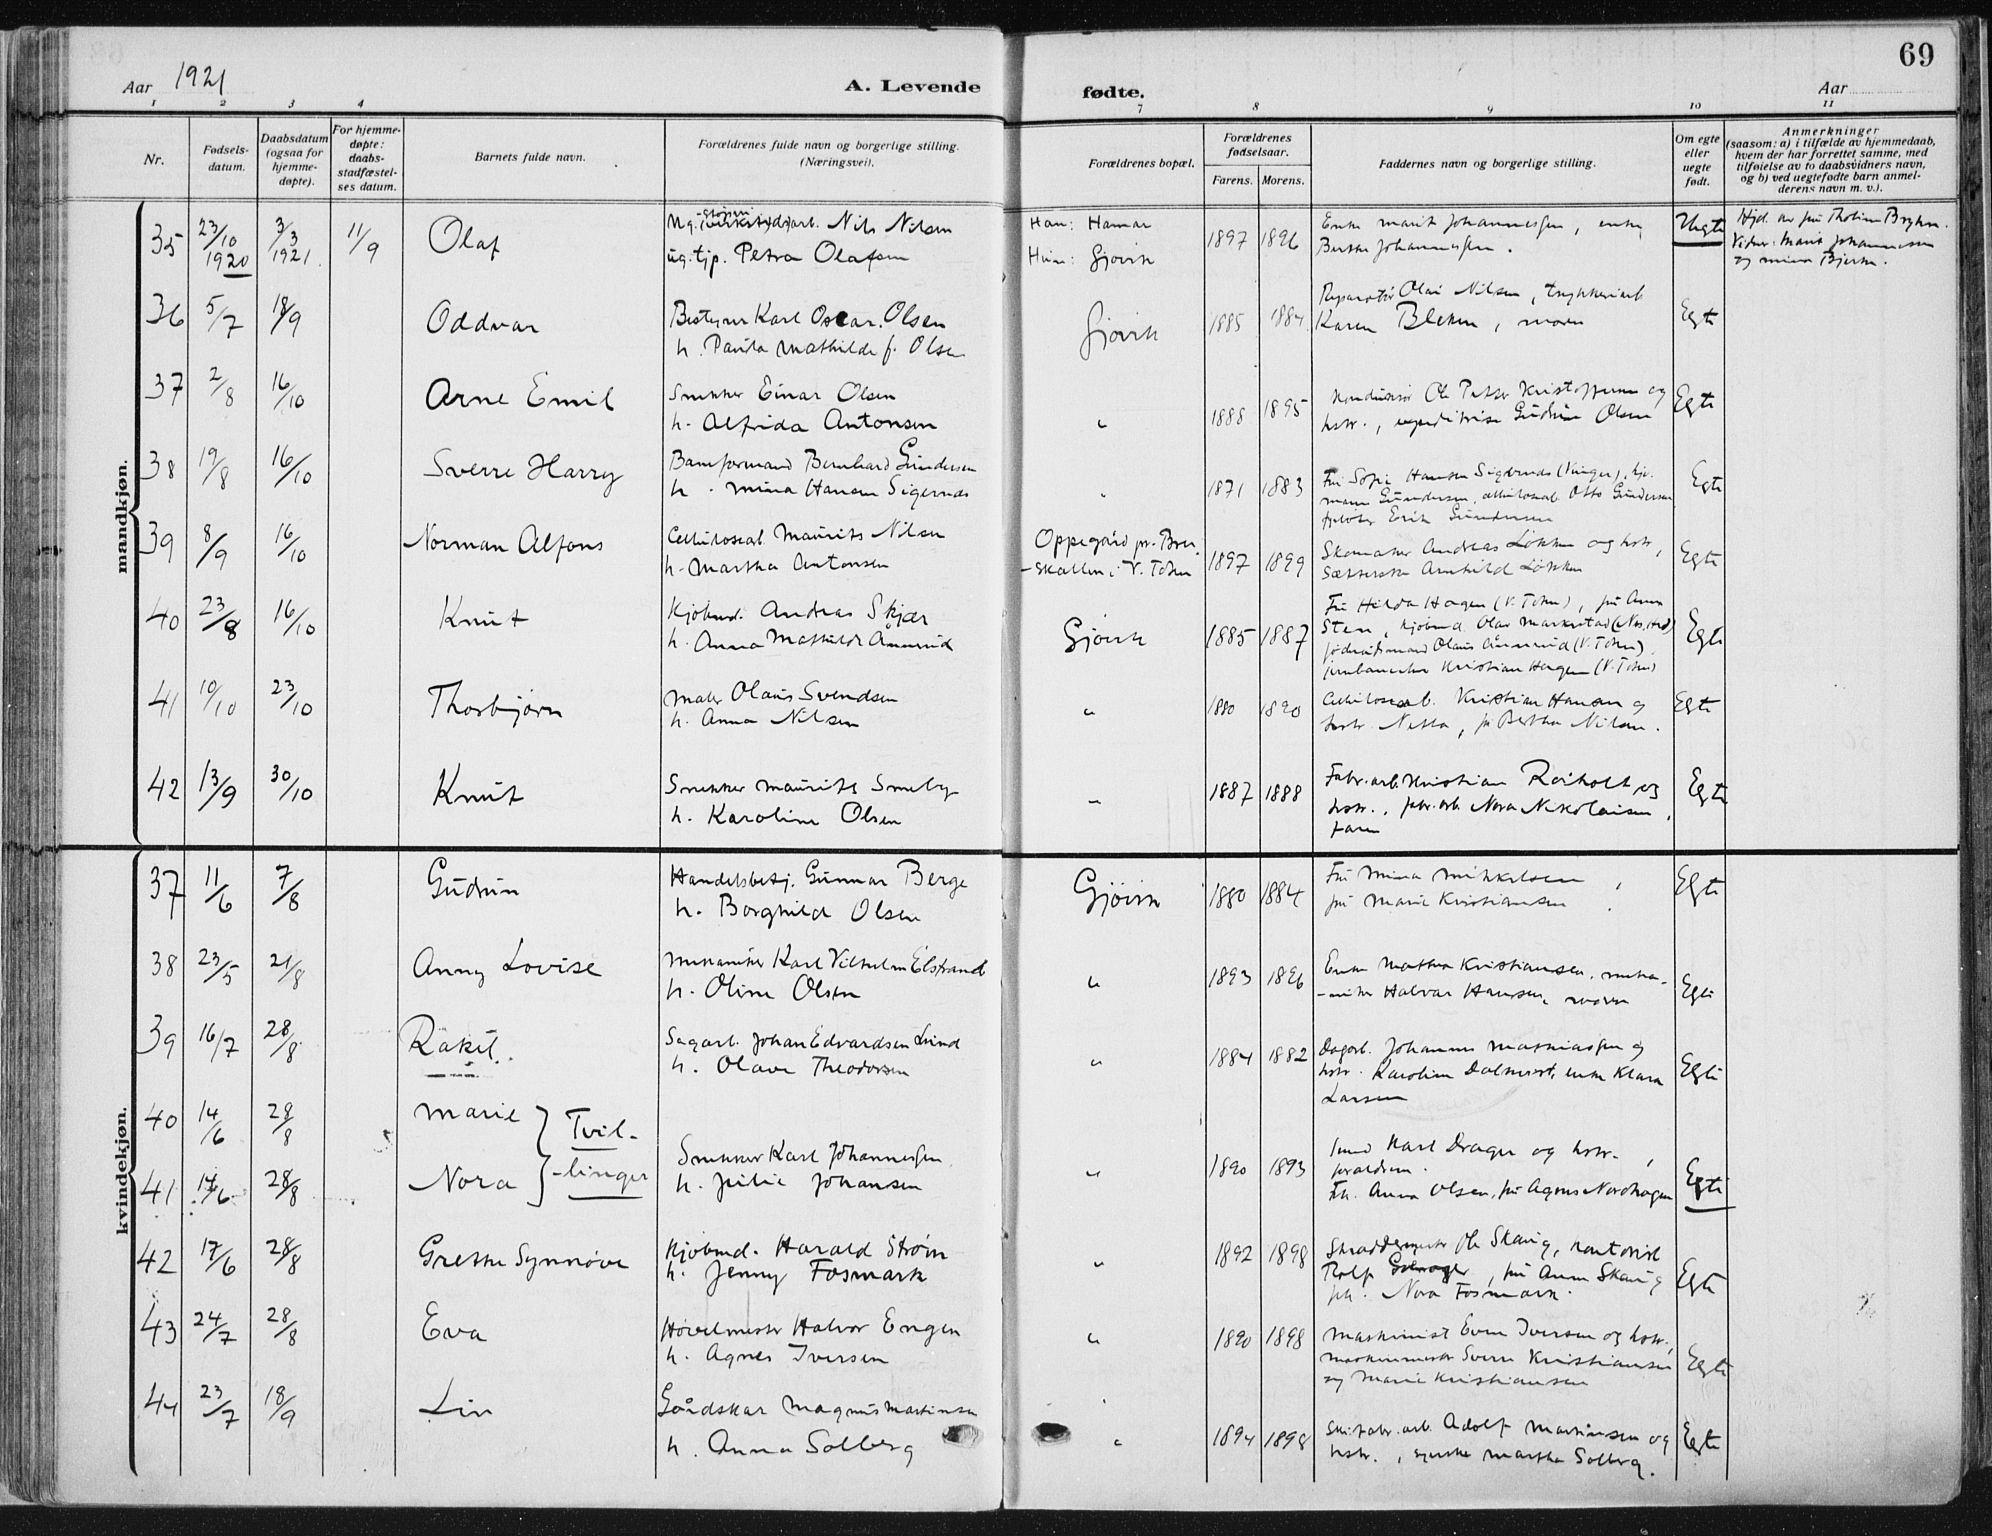 69
Aar 1921
A. Levende
fødte.
Aar
1 2 3 4 7 8 9 10 11
Nr.
Fødsels-
datum.
Daabsdatum
(ogsaa for
hjemme-
døpte).
For hjemme-
døpte:
daabs-
stadfæstel-
ses datum.
Barnets fulde navn.
Forældrenes fulde navn og borgerlige stilling.
(Næringsvei).
Forældrenes bopæl.
Forældrenes
fødselsaar.
Farens. Morens.
Faddernes navn og borgerlige stilling.
Om egte
eller
uegte
født.
Anmerkninger
(saasom: a) i tilfælde av hjemmedaab,
hvem der har forrettet samme, med
tilføielse av to daabsvidners navn,
og b) ved uegtefødte barn anmel-
derens navn m. v.).
mandkjøn.
35 23/10 1920 3/3 1921. 11/9 Olaf
Nils Nilsen
ug. tjp. Petra Olafsen
Han: Hamar
Hun: Gjøvik
1897 1896
Enke Marit Johannessen, enke
Berthe Johannessen.
Uegte
Hjd. av fru Tholine Bryhn.
Vidner: Marit Johannessen
og Mina Bjerke.
36 5/7 18/9 Oddvar
Bestyrer Karl Oscar Olsen
h. Paula Mathilde f. Olsen
Gjøvik
1885 1884
Reparatør Olai Nilsen,
Karen Bleken, moren
Egte
37 2/8 16/10 Arne Emil
Snekker Einar Olsen
h. Alfrida Antonsen
"
1888 1895
Konduktør Ole Petter Kristoffersen og
hstr., expeditrise Gudrun Olsen
Egte
38 19/8 16/10 Sverre Harry
Baneformand Bernhard Gundersen
h. Mina Hansen Sigernes
"
1871 1883
Fru Sofie Hansen Sigernes (Vinger),
Gundersen, cellulosearb. Otto Gundersen
Erik Gundersen
Egte
39 8/9 16/10 Norman Alfons
Cellulosearb. Maurits Nilsen
h. Martha Antonsen
Oppegård pr. Brei-
-skallen i V. Toten
1897 1899
Skomaker Andreas Løkken og hstr,
Arnhild Løkken
Egte
40 23/8 16/10 Knut
Kjøbmd. Andreas Skjær
h. Anna Mathilde Ånnerud
Gjøvik
1885 1887
Fru Hilda Hagen (V. Toten), fru Anna
Sten, kjøbmd. Olav (Nes, Hed)
Olaus Ånnerud (V. Toten),
Kristian Hagen (V. Toten)
Egte
41 10/10 23/10 Thorbjørn
Maler Olaus Svendsen
h. Anna Nilsen
"
1880 1890
Cellulosearb. Kristian Hansen og
hstr. Netta, fr. Bertha Nilsen.
Egte
42 13/9 30/10 Knut
Snekker Maurits Smeby
h. Karoline Olsen
"
1887 1888
Fabr.arb. Kristian Roiholt og
hstr., fabr.arb. Nora Nikolaisen,
faren
Egte
kvindekjøn.
37 11/6 7/8 Gudrun
Handelsbetj. Gunnar Berge
h. Borghild Olsen
Gjøvik
1880 1884
Fru Mina Mikkelsen,
fru Marie Kristiansen.
Egte
38 23/5 21/8 Anny Lovise
Mekaniker Karl Vilhelm Elstrand
h. Oline Olsen
"
1893 1896
Enke Mathea Kristiansen, meka-
-niker Halvar Hansen, moren
Egte
39 16/7 28/8 Rakel.
Sagarb. Johan Edvardsen Lund
h. Olave Theodorsen
"
1884 1882
Dagarb. Johannes Mathiassen og
hstr. Karoline Dalquist, enke Klara
Larsen
Egte
40 14/6 28/8 Marie
Tvil-
41 14/6 28/8 Nora
-linger
Snekker Karl Johannessen
h. Julie Johansen
"
1890 1893
Karl Drager og hstr.,
foreldrene.
Frk. Anna Olsen, fru Agnes Nordhagen
Egte
42 17/6 28/8 Grethe Synnøve
Kjøbmd. Harald Strøm
h. Jenny Fosmark
"
1892 1898
Skreddermester Ole Skaug, kontorist
Rolf , fru Anna Skaug
frk. Nora Fosmark.
Egte
43 24/7 28/8 Eva
Høvelmester Halvor Engen
h. Agnes Iversen
"
1890 1898
Maskinist Even Iversen og hstr.,
maskinmester Sverre Kristiansen
og Marie Kristiansen
Egte
44 23/7 18/9 Liv
Gårdskar Magnus Martinsen
h. Anna Solberg
"
1894 1898
Skifabr.arb. Adolf Martinsen og
hstr., Martha Solberg.
Egte